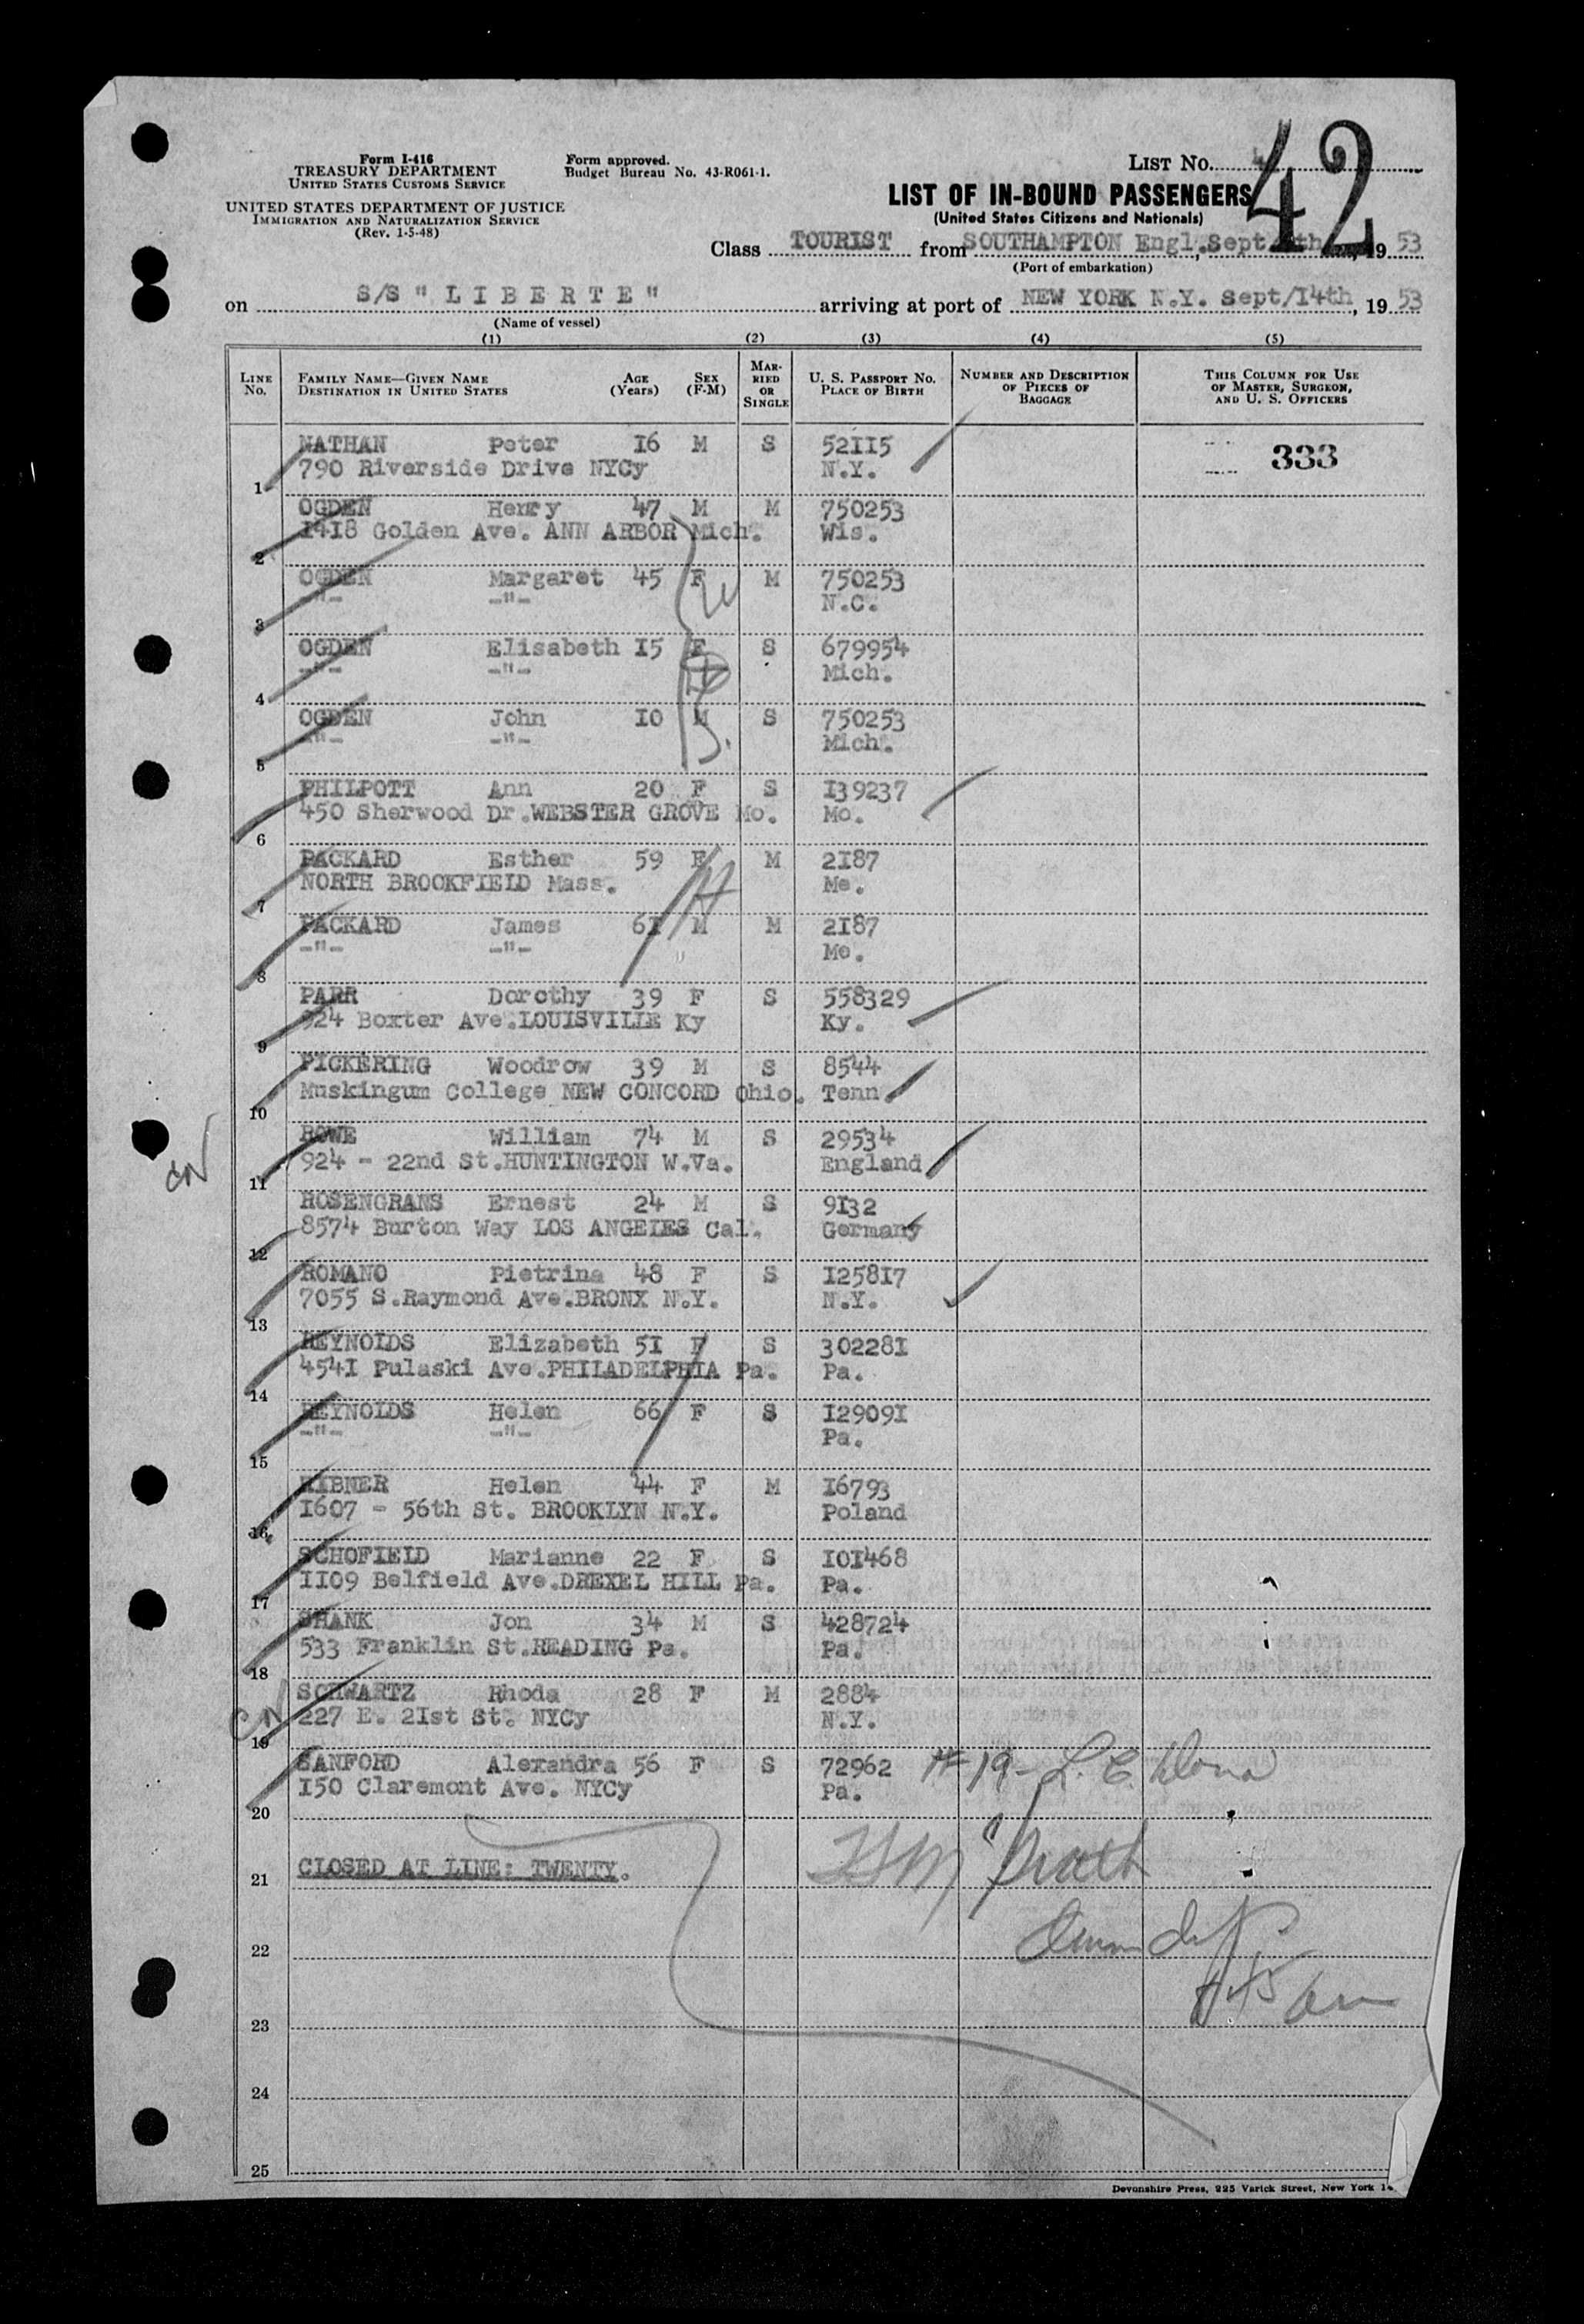 Form I-416
TREASURY DEPARTMENT
UNITED STATES CUSTOMS SERVICE
UNITED STATES DEPARTMENT OF JUSTICE
IMMIGRATION AND NATURALIZATION SERVICE
(Rev. 1-5-48)
Form approved.
Budget Bureau No. 43-R061-1.
LIST No. 42
LIST OF IN-BOUND PASSENGERS
(United States Citizens and Nationals)
Class TOURIST from SOUTHAMPTON Engl., Sept 1953
(Port of embarkation)
on S/S " L I B E R T E " arriving at port of NEW YORK N.Y. Sept/14th, 1953
(Name of vessel)
(1) (2) (3) (4) (5)
LINE No. FAMILY NAME—GIVEN NAME DESTINATION IN UNITED STATES AGE (Years) SEX (F-M) MARRIED OR SINGLE U. S. PASSPORT No. PLACE OF BIRTH NUMBER AND DESCRIPTION OF PIECES OF BAGGAGE THIS COLUMN FOR USE OF MASTER, SURGEON, AND U. S. OFFICERS
NATHAN Peter 16 M S 52115 333
1 790 Riverside Drive NYCy N.Y.
OGDEN Henry 47 M M 750253
2 1418 Golden Ave. ANN ARBOR Mich. Wis.
OGDEN Margaret 45 F M 750253
3 -"- -"- N.C.
OGDEN Elisabeth 15 F S 679954
4 -"- -"- Mich.
OGDEN John 10 M S 750253
5 -"- -"- Mich.
PHILPOTT Ann 20 F S 139237
6 450 Sherwood Dr.WEBSTER GROVE Mo. Mo.
PACKARD Esther 59 F M 2187
7 NORTH BROOKFIELD Mass. Me.
PACKARD James 61 M M 2187
8 -"- -"- Me.
PARR Dorothy 39 F S 558329
9 924 Boxter Ave.LOUISVILLE Ky Ky.
PICKERING Woodrow 39 M S 8544
10 Muskingum College NEW CONCORD Ohio. Tenn.
ROWE William 74 M S 29534
11 924 - 22nd St.HUNTINGTON W.Va. England
ROSENGRANS Ernest 24 M S 9132
12 8574 Burton Way LOS ANGELES Cal. Germany
ROMANO Pietrina 48 F S 125817
13 7055 S.Raymond Ave.BRONX N.Y. N.Y.
REYNOLDS Elizabeth 51 F S 302281
14 4541 Pulaski Ave.PHILADELPHIA Pa. Pa.
REYNOLDS Helen 66 F S 129091
15 -"- -"- Pa.
RIBNER Helen 44 F M 16793
16 1607 - 56th St. BROOKLYN N.Y. Poland
SCHOFIELD Marianne 22 F S 101468
17 1109 Belfield Ave.DREXEL HILL Pa. Pa.
SHANK Jon 34 M S 428724
18 533 Franklin St.READING Pa. Pa.
SCHWARTZ Rhoda 28 F M 2884
19 227 E. 21st St. NYCy N.Y.
SANFORD Alexandra 56 F S 72962 #19-
20 150 Claremont Ave. NYCy Pa.
21 CLOSED AT LINE: TWENTY.
22
23
24
25
Devonshire Press, 225 Varick Street, New York 14